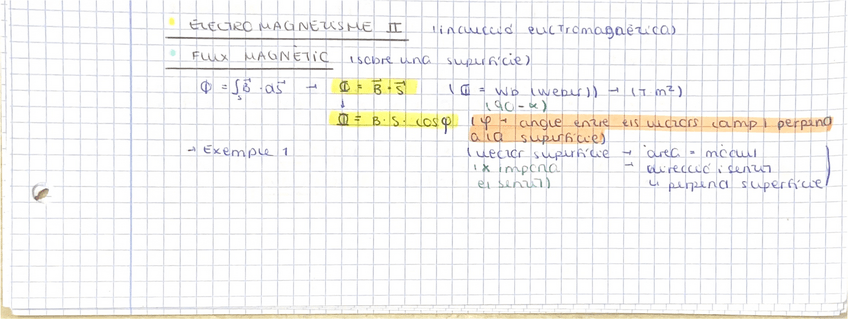 ELECTROMAGNETISME II (inducció electromagnètica)
FLUX MAGNÈTIC (sobre una superfície)
Φ = ∫s B⃗ · dS⃗ → Φ = B⃗ · S⃗ (Φ = Wb (Weber)) → (T m²)
↓ (90 - α)
Φ = B · S · cosφ (φ → angle entre els vectors camp i perpend
a la superfície)
→ Exemple 1 (vector superfície → àrea = mòdul
(x imposa → direcció i sentit
el sentit) ↳ perpend superfície)